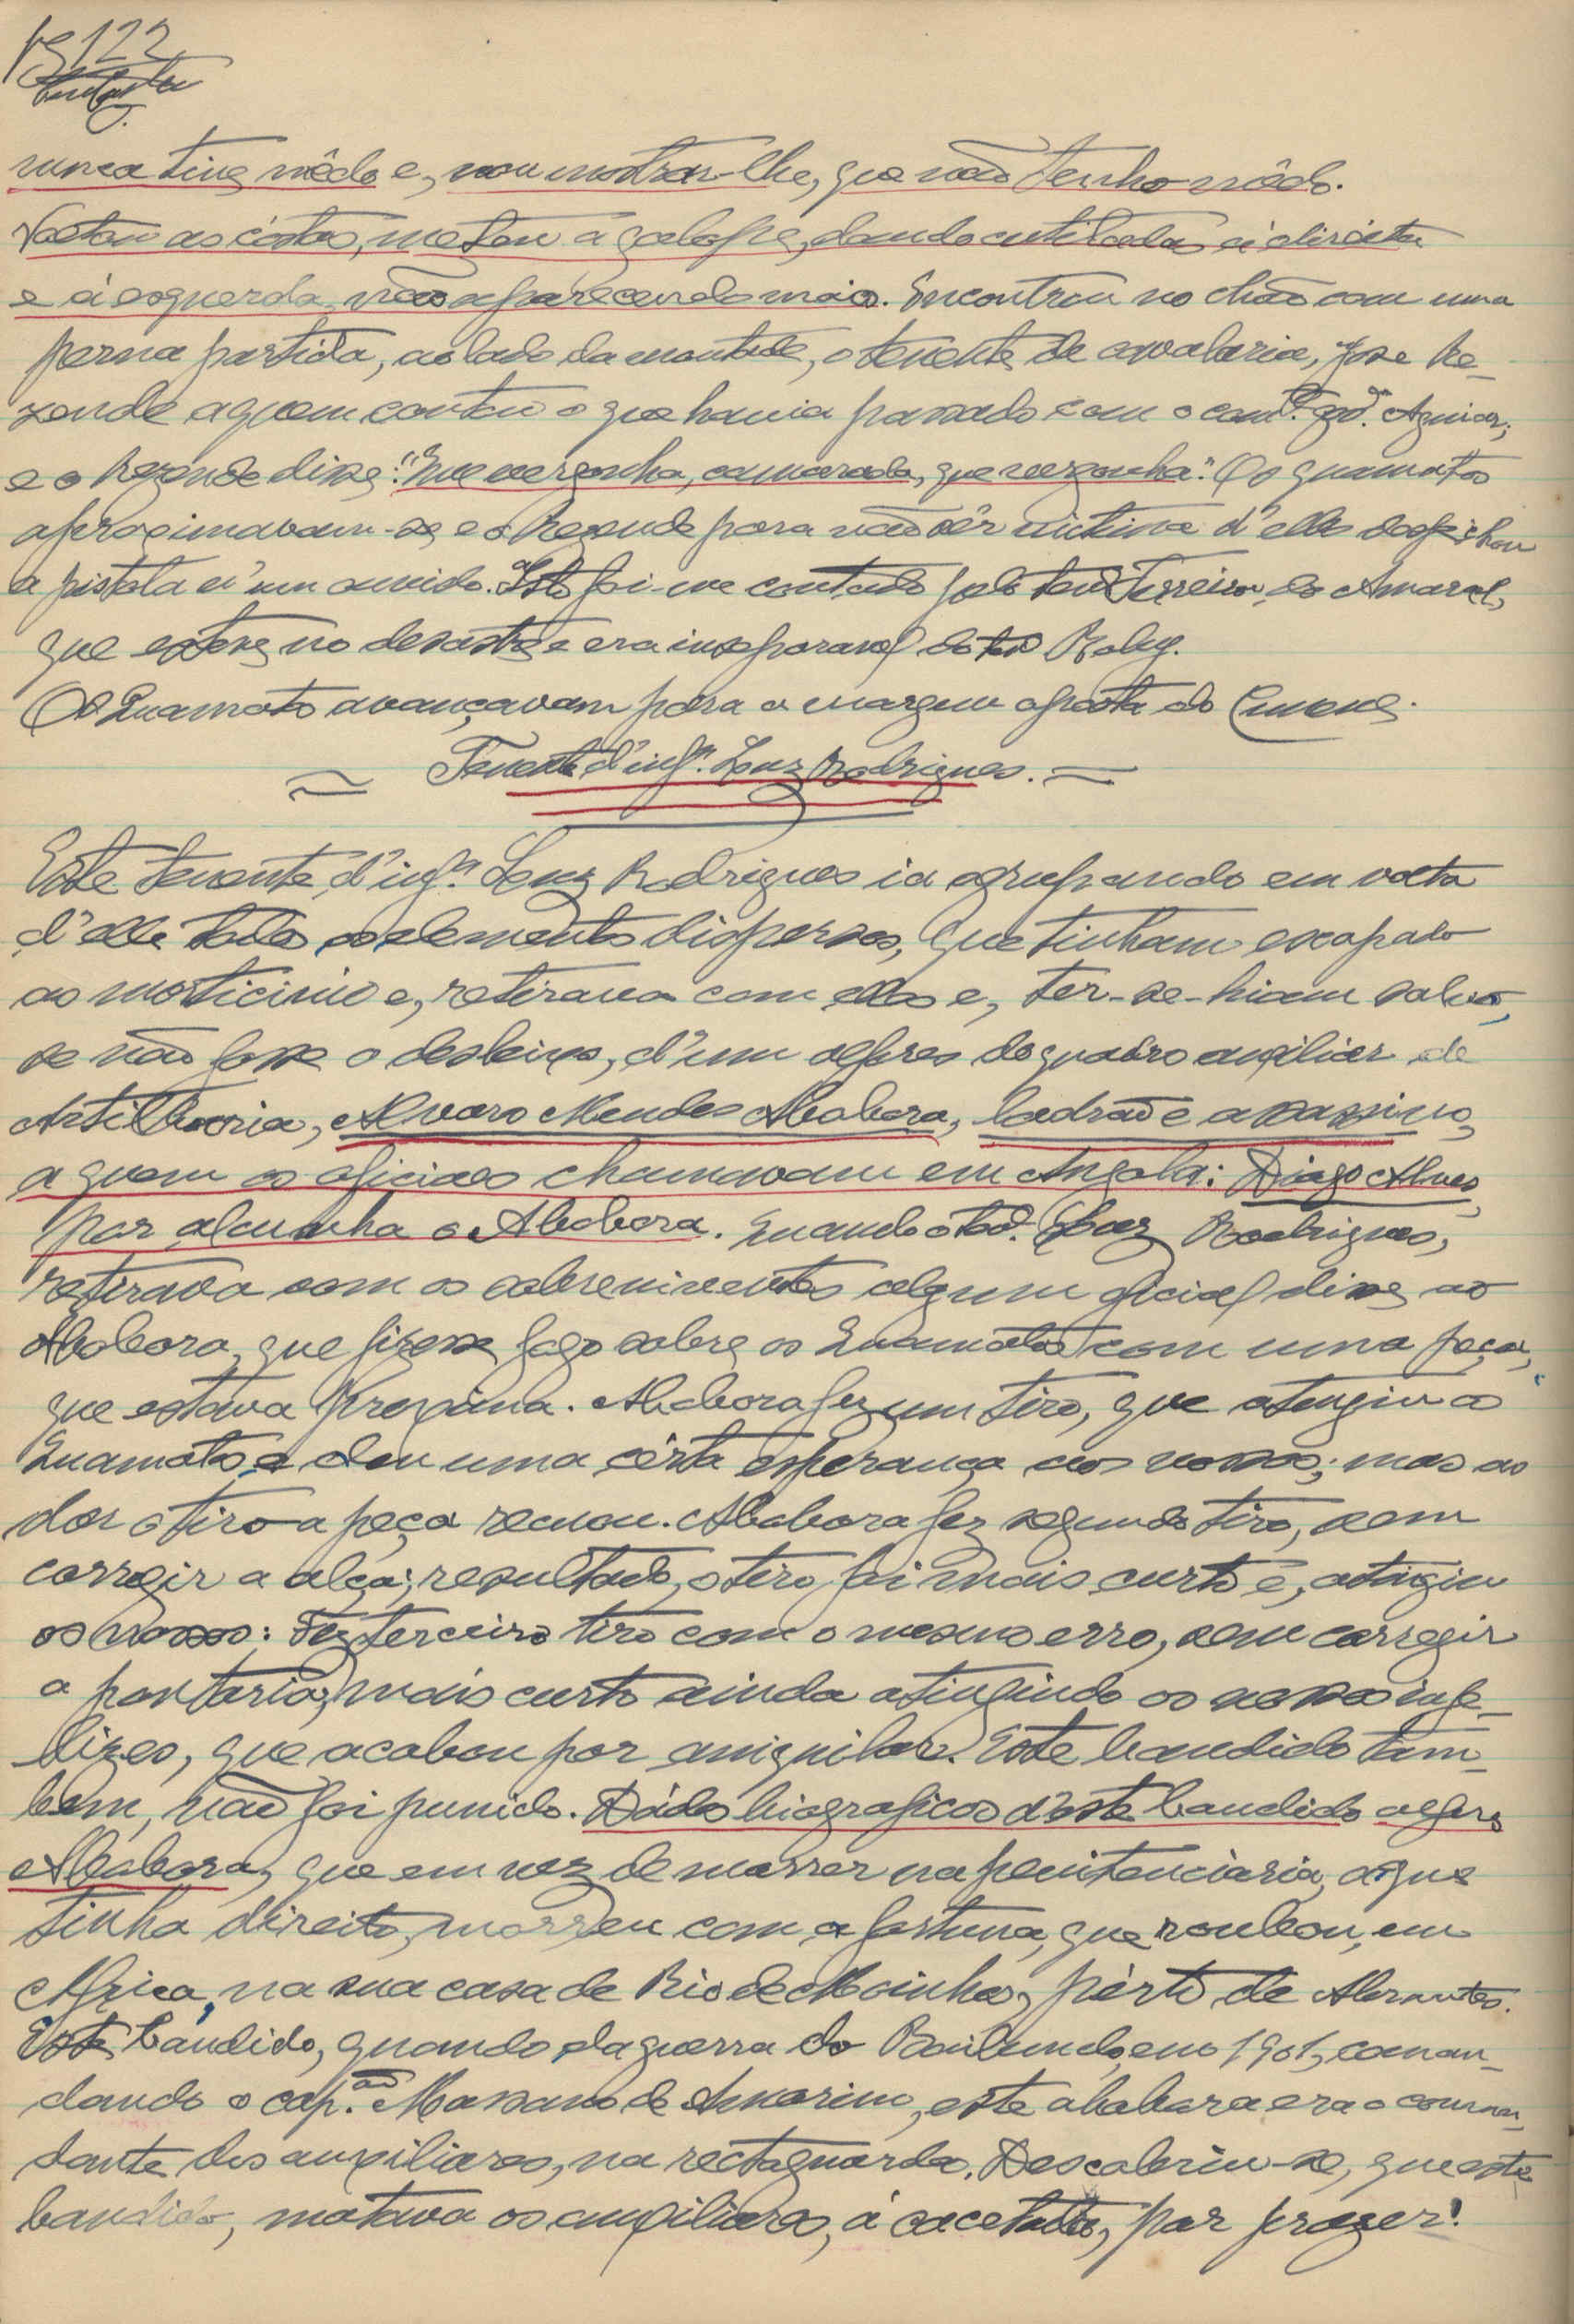 122
nunca tive mêdo e, vou mostrar-lhe, que não tenho mêdo.
Voltou as cóstas, meteu a galope, dando cutiladas á direita
e á esquerda, não aparecendo mais. Encontrou no chão com uma
perna partida, ao lado da montada, o tenente de cavalaria, José Re-
zende a quem contou o que havia passado com o com.te Aguiar;
e o Rezende disse: "Que vergonha, camarada, que vergonha". Os quamatos
aproximavam-se e o Rezende para não sêr vitima d'elles despejhou
a pistola n'um ouvido. Isto foi-me contado pelo ten.te Ferreira do Amaral,
que esteve no desastre e era inseparavel do ten.te Roby.
Os Quamatos avançavam para a margem oposta do Cunene.
= Tenente d'inf.ª Luz Rodrigues. =
Este tenente, d'inf.ª Luz Rodrigues ia agrupando em volta
d'elle todos os elementos dispersos, que tinham escapado
ao morticinio e, retirava com elles e, ter-se-hiam salvo,
se não fosse o desleixo, d'um alferes do quadro auxiliar de
Artilharia, Alvaro Mendes Abobora, ladrão e assassino,
a quem os oficiaes chamavam em Angola: Diogo Alves,
por alcunha o Abobora. Quando o ten.te Luz Rodrigues,
retirava com os sobreviventes algum oficial disse ao
Abobora, que fizesse fogo sobre os Quamatos com uma peça,
que estava proxima. Abobora fez um tiro, que atingiu os
Quamatos e deu uma cérta esperança aos nossos; mas ao
dar o tiro a peça recuou. Abobora fez segundo tiro, sem
corregir a alça; resultado, o tiro foi mais curto e, atingiu
os nossos: Fez terceiro tiro com o mesmo erro, sem corregir
a pontaria, mais curto ainda atingindo os nossos infe-
lizes, que acabou por aniquilar. Este bandido tam-
bem, não foi punido. Dádos biograficos d'este bandido alferes
Abobora, que em vez de morrer na penitenciaria, a que
tinha direito, morreu com a fortuna, que roubou, em
Africa, na sua casa de Rio de Moinhos, pérto de Abrantes.
Este bandido, quando da guerra do Bailundo, em 1901, coman-
dando o cap.ão Massano de Amorim, este abobora era o coman-
dante dos auxiliares, na rectaguarda. Descobriu-se, que este
bandido, matava os auxiliares, á cacetada, por prazer!